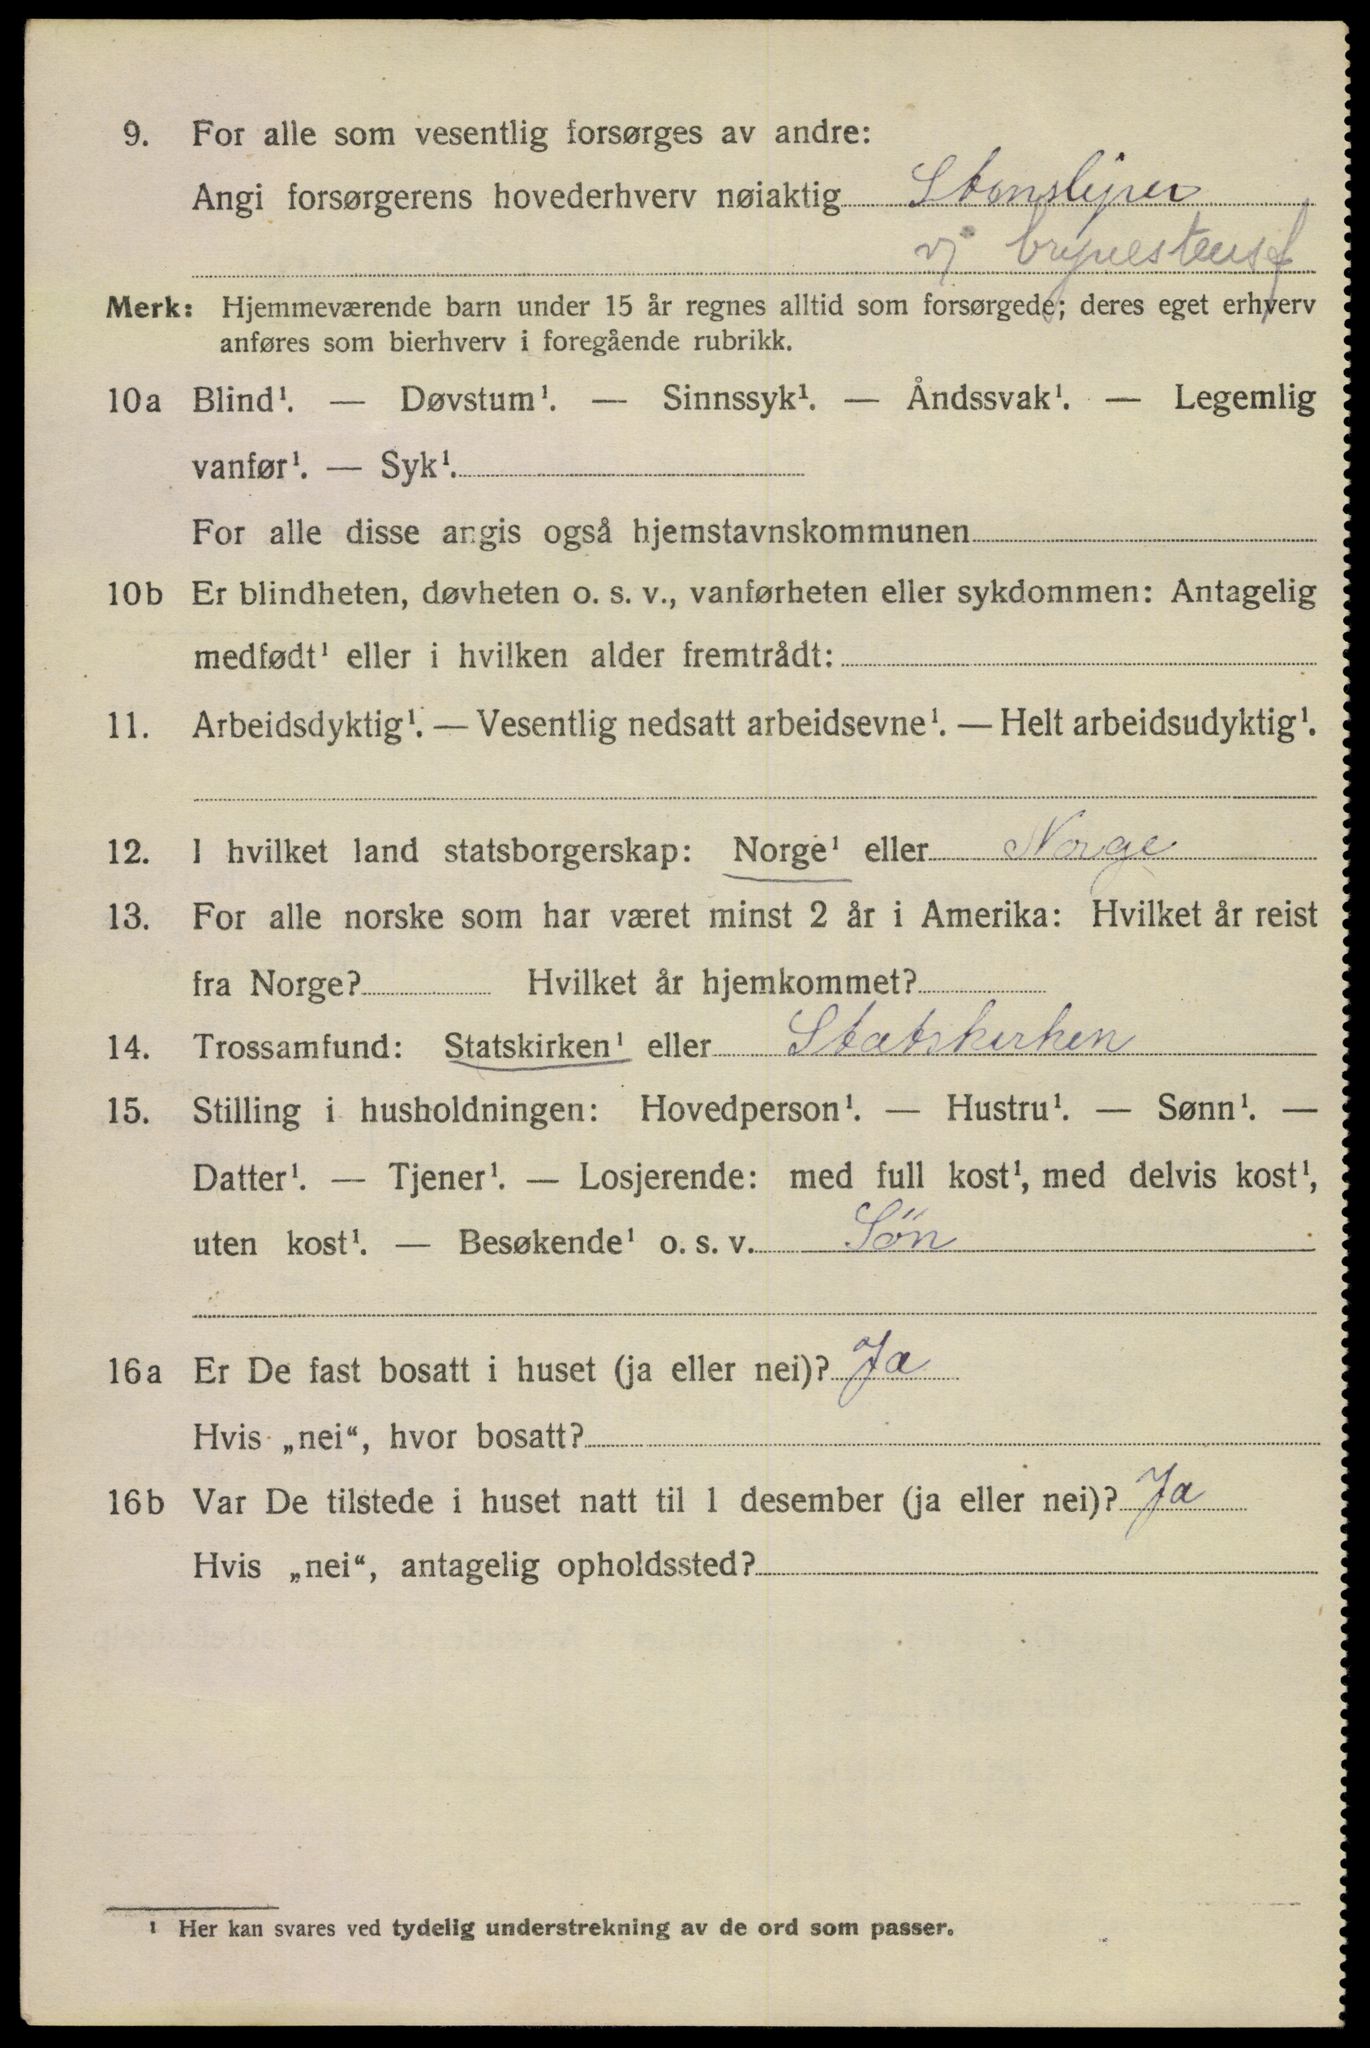 9. For alle som vesentlig forsørges av andre:
Angi forsørgerens hovederhverv nøiaktig Stensliper
v/ brynestensf
Merk: Hjemmeværende barn under 15 år regnes alltid som forsørgede; deres eget erhverv
anføres som bierhverv i foregående rubrikk.
10a Blind¹. — Døvstum¹. — Sinnssyk¹. — Åndssvak¹. — Legemlig
vanfør¹. — Syk¹.
For alle disse angis også hjemstavnskommunen
10b Er blindheten, døvheten o. s. v., vanførheten eller sykdommen: Antagelig
medfødt¹ eller i hvilken alder fremtrådt:
11. Arbeidsdyktig¹. — Vesentlig nedsatt arbeidsevne¹. — Helt arbeidsudyktig¹.
12. I hvilket land statsborgerskap: Norge¹ eller Norge
13. For alle norske som har været minst 2 år i Amerika: Hvilket år reist
fra Norge? Hvilket år hjemkommet?
14. Trossamfund: Statskirken¹ eller Statskirken
15. Stilling i husholdningen: Hovedperson¹. — Hustru¹. — Sønn¹. —
Datter¹. — Tjener¹. — Losjerende: med full kost¹, med delvis kost¹,
uten kost¹. — Besøkende¹ o. s. v. Sön
16a Er De fast bosatt i huset (ja eller nei)? Ja
Hvis „nei“, hvor bosatt?
16b Var De tilstede i huset natt til 1 desember (ja eller nei)? Ja
Hvis „nei“, antagelig opholdssted?
¹ Her kan svares ved tydelig understrekning av de ord som passer.